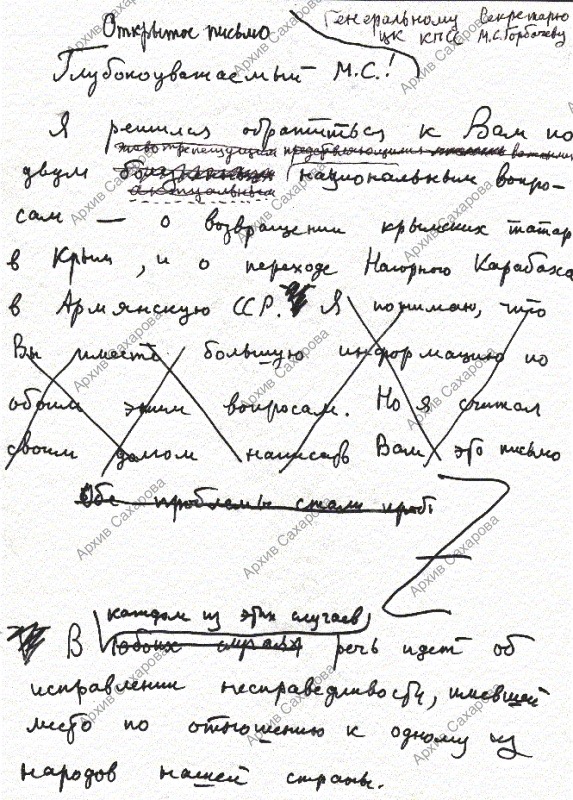 Открытое письмо
Генеральному Секретарю
ЦК КПСС М.С.Горбачеву
Глубокоуважаемый М.С.!
Я решился обратиться к Вам по
животрепещущим
двум национальным вопро-
актуальным
сам — о возвращении крымских татар
в Крым, и о переходе Нагорного Карабаха
в Армянскую ССР. Я понимаю, что
Вы имеете большую информацию по
обоим этим вопросам. Но я считал
своим долгом написать Вам это письмо
Обе проблемы стали проб
каждом из этих случаев
В обоих случаях речь идет об
исправлении несправедливости, имевшей
место по отношению к одному из
народов нашей страны.
Архив Сахарова